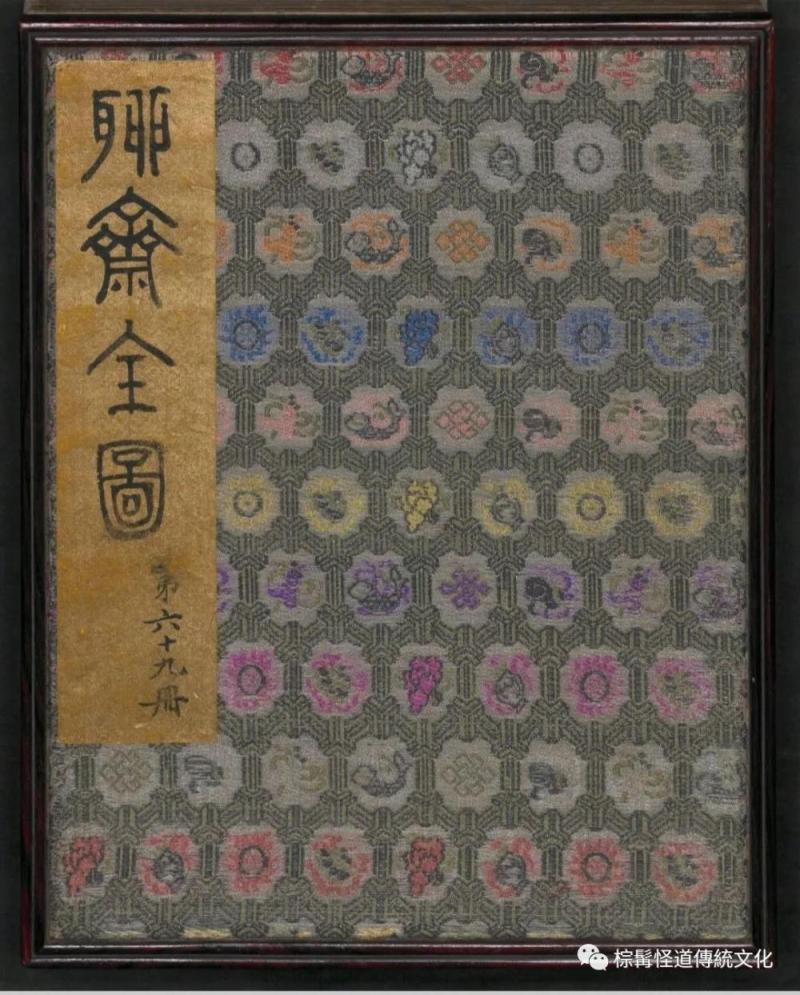 聊齋全圖
第六十九冊
棕髯怪道傳統文化